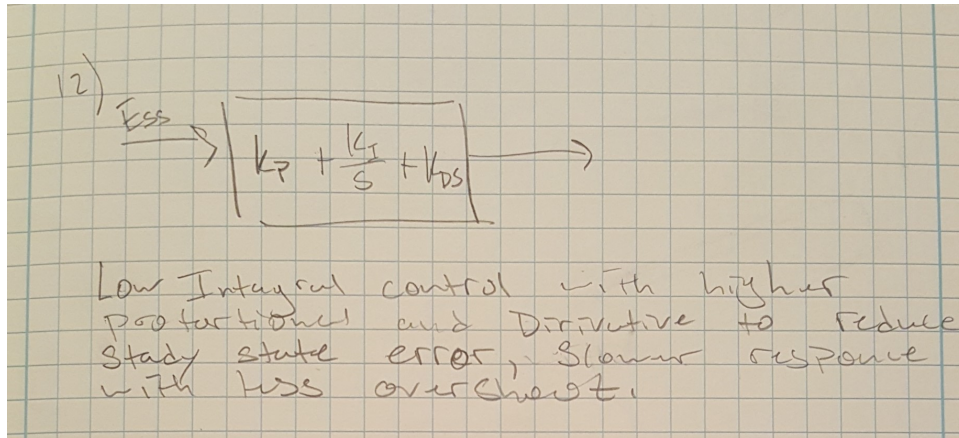 12)
Ess
Kp + KI/S + KDS
Low Intagral control with higher
protartional and Dirivative to reduce
Stady state error, Slower responce
with less overshoot.